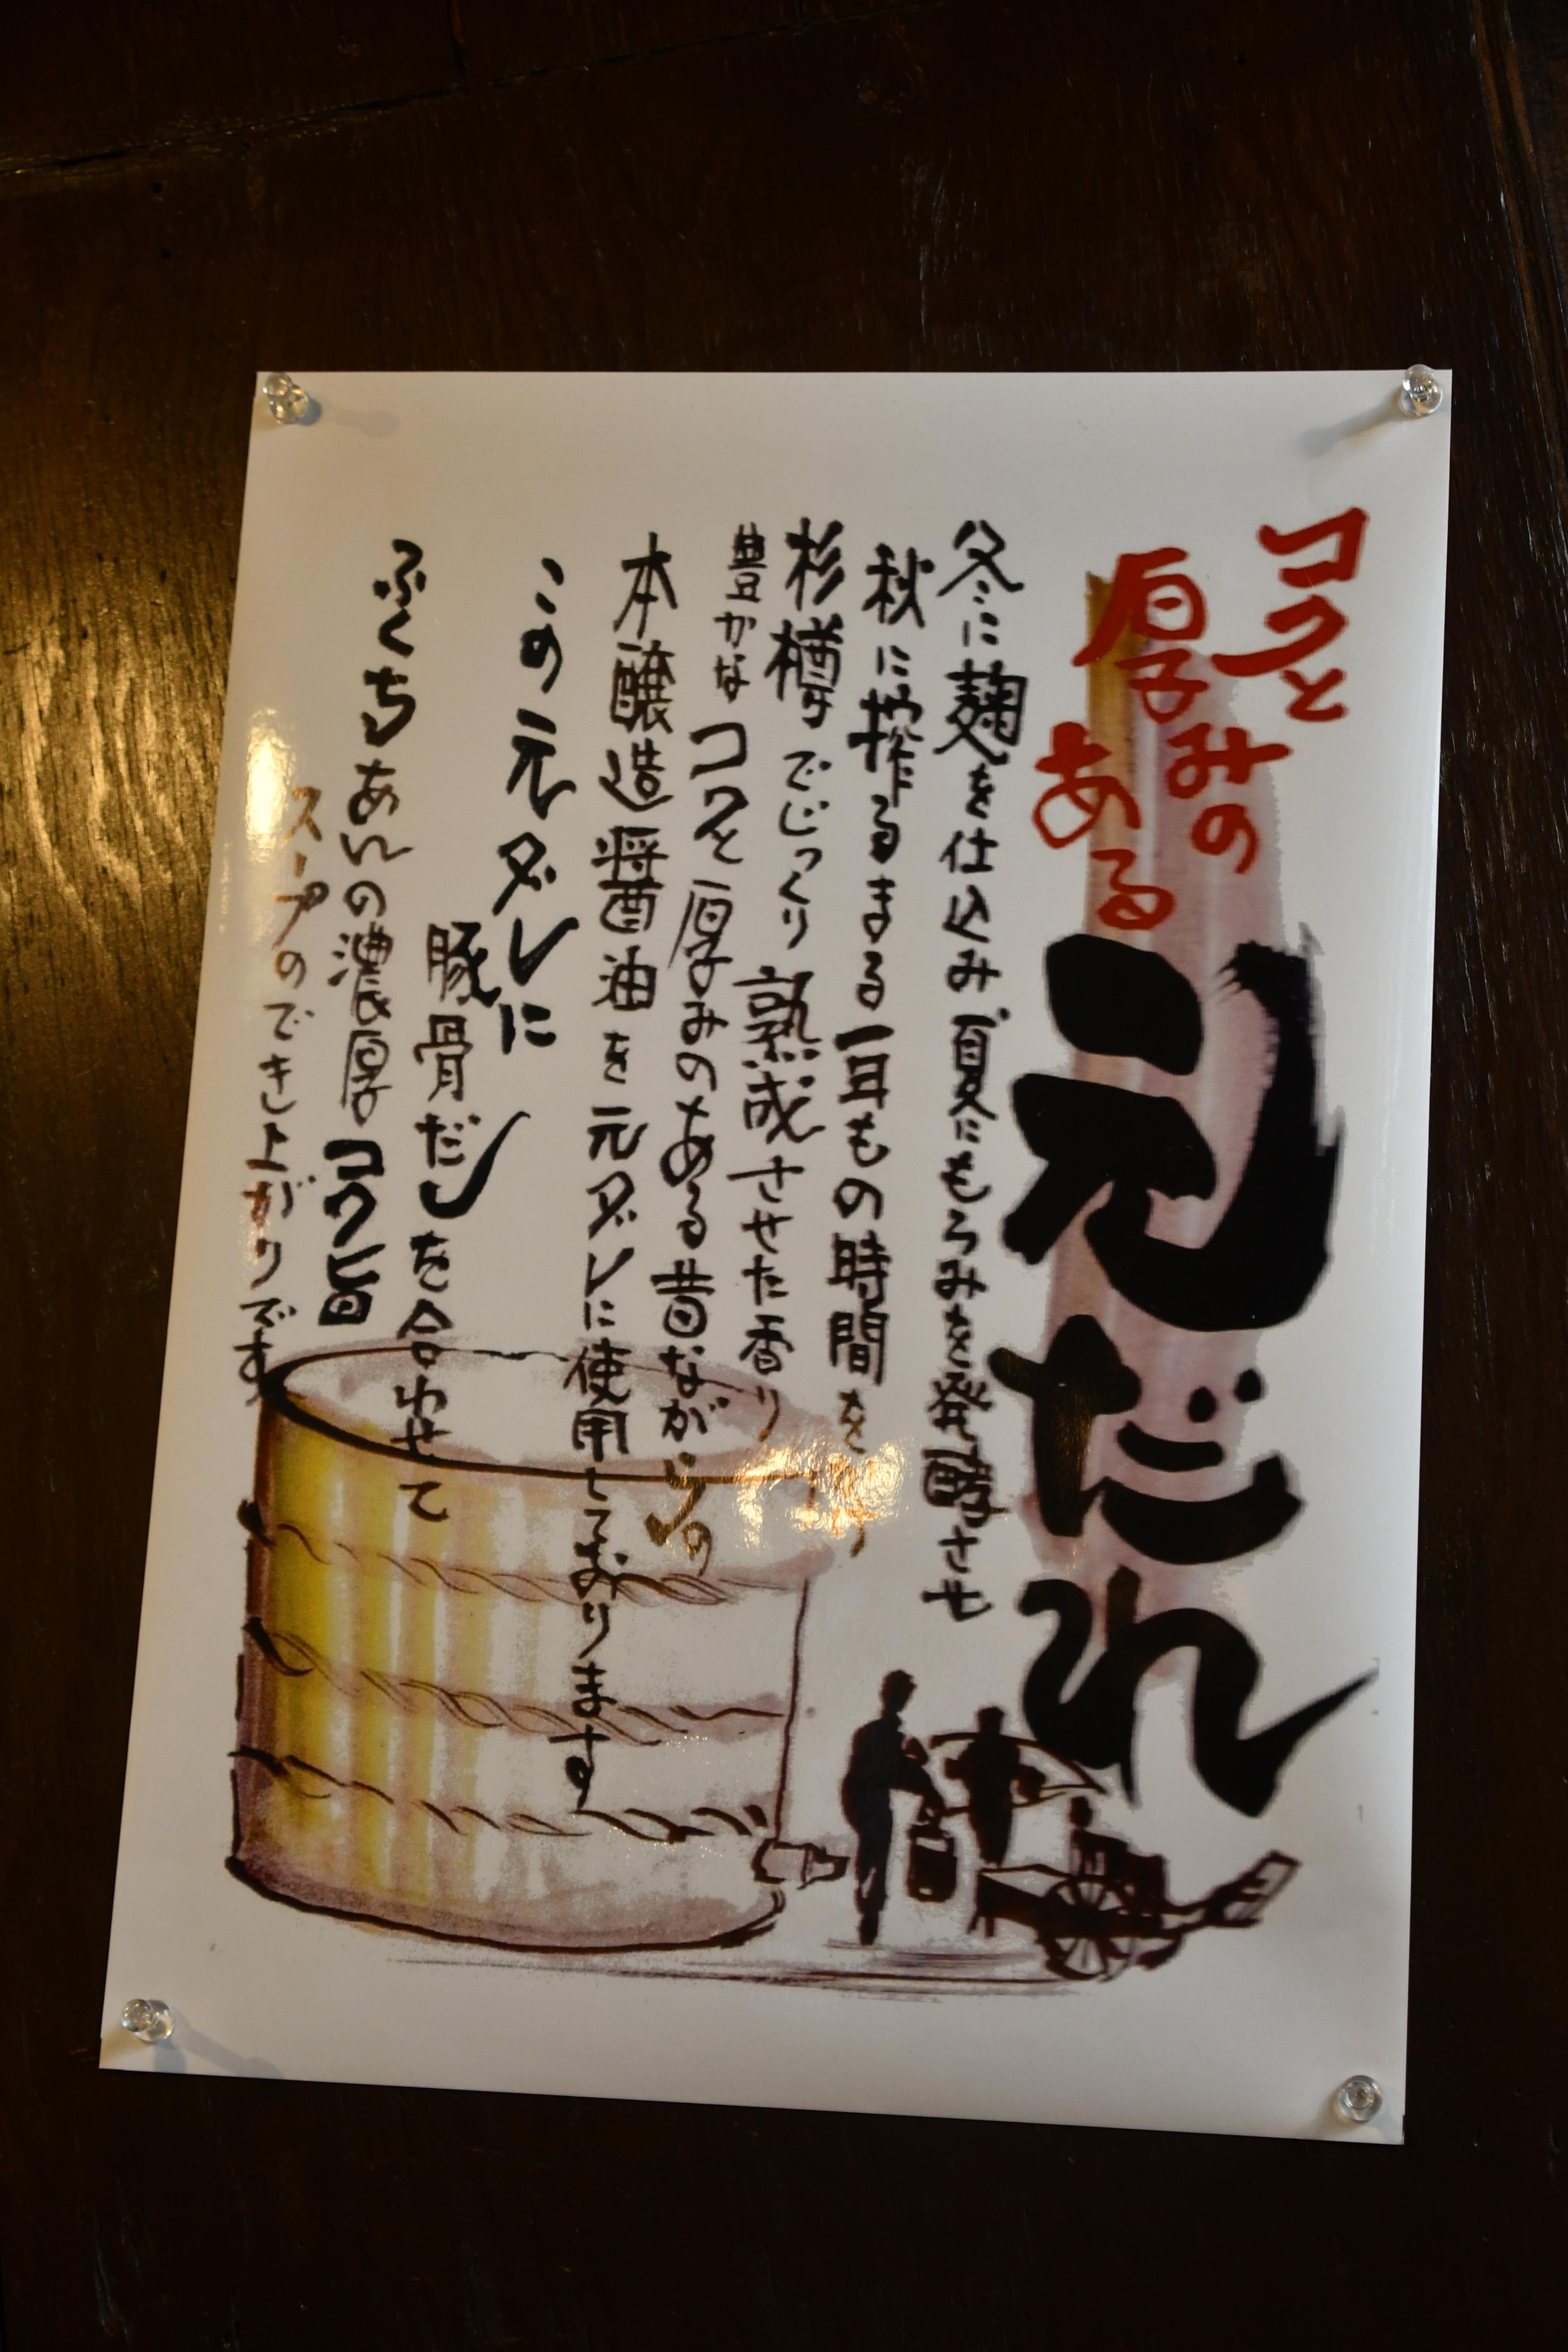 コクと
厚みの
ある
元だれ
冬に麹を仕込み、夏にもろみを発酵させ
秋に搾るまる一年もの時間を
杉樽でじっくり熟成させた香り
豊かなコクと厚みのある昔ながらの
本醸造醤油を元ダレに使用しております
この元ダレに
豚骨だしを合わせて
ふくちあんの濃厚コク旨
スープのでき上がりです